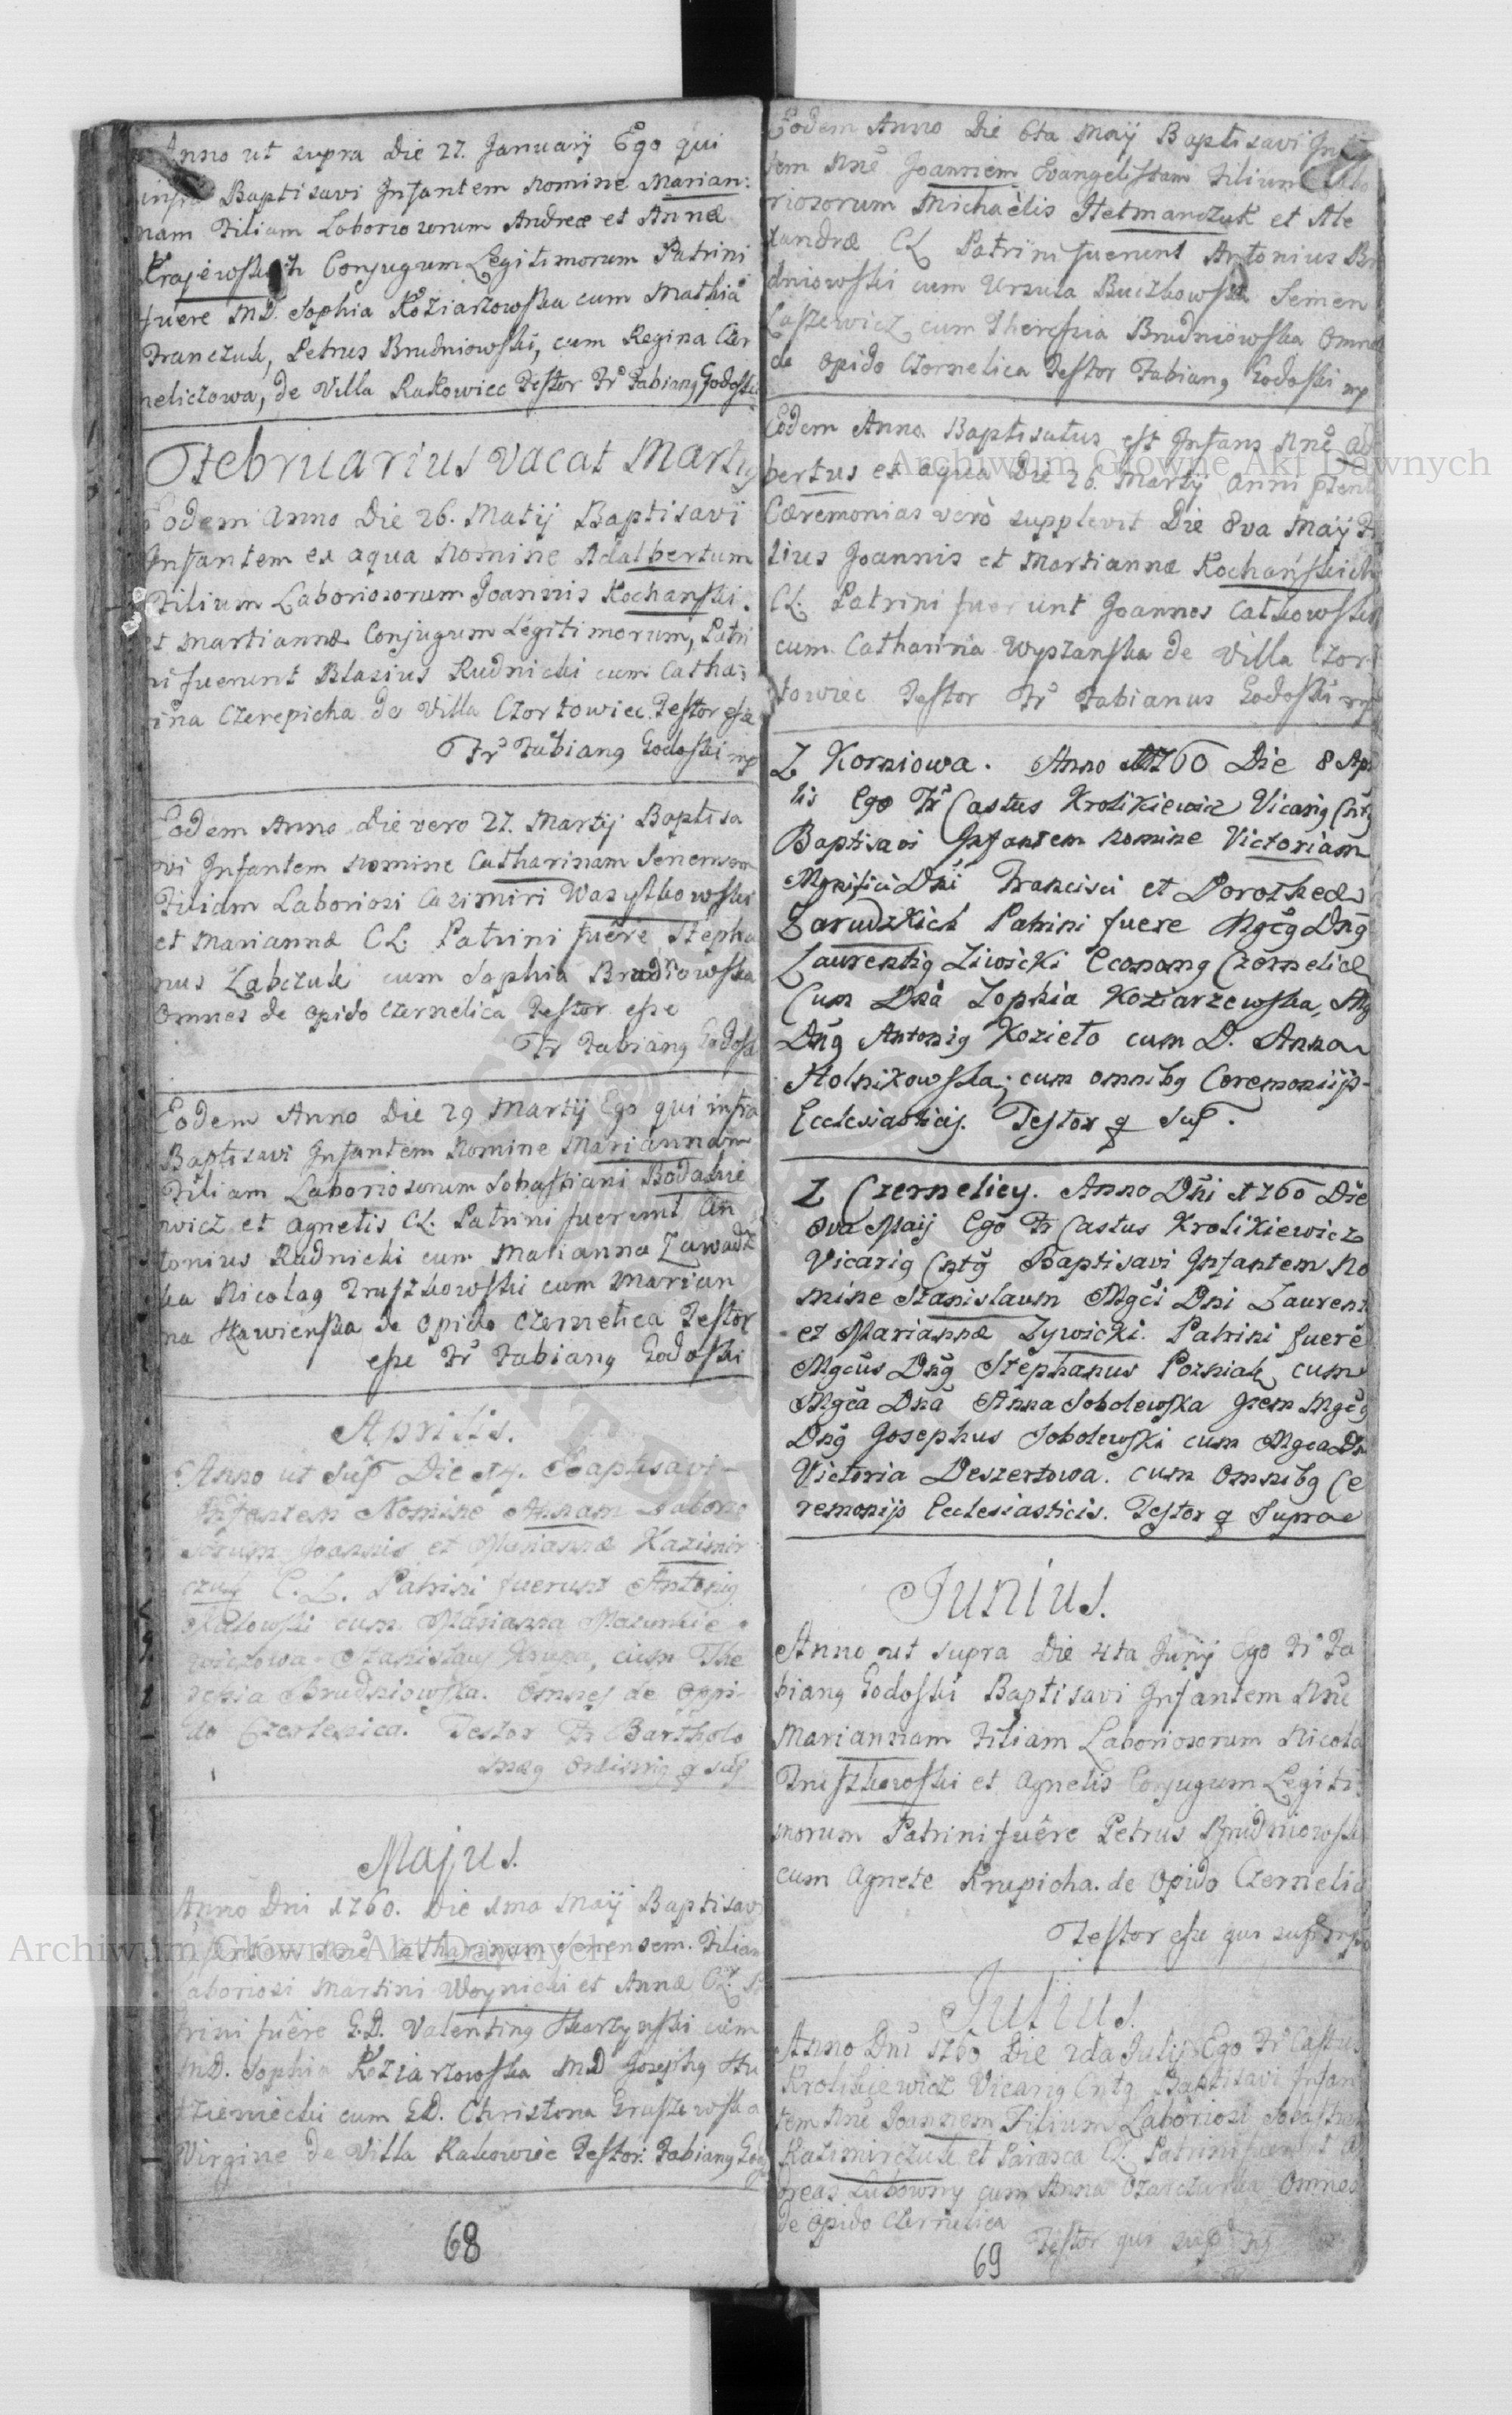 Anno ut supra Die 27. Januarij Ego qui
infra Baptisavi Infantem Nomine Marian:
nam Filiam Laboriosorum Andreæ et Annæ
Krajewskich Conjugum Legitimorum Patrini
fuere MD. Sophia Koziarzowska cum Mathia
Franczuk, Petrus Brudniowski, cum Regina Czer
neliczowa, de Villa Rakowiec Testor Fr Fabiang Godoski
Februarius vacat Martij
Eodem Anno Die 26. Matij Baptisavi
Infantem ex aqua Nomine Adalbertum
Filium Laboriosorum Joannis Kochanski.
et Martiannæ Conjugum Legitimorum, Patri
ni fuerunt Blasius Rudnicki cum Catha:
rina Czerepicha de Villa Czortowiec. Testor esse
Fr Fabiang Godoski mp
Eodem Anno Die vero 27. Martij Baptisa
vi Infantem Nomine Catharinam Senensem
Filiam Laboriosi Casimiri Wasylkowski
et Mariannæ CL. Patrini fuêre Stepha
nus Labczuk cum Sophia Brudniowska
Omnes de Opido Czernelica Testor esse
Fr Fabiang Godoski
Eodem Anno Die 29 Martij Ego qui infra
Baptisavi Infantem Nomine Mariannam
Filiam Laboriosorum Sobastiani Bodakie
wicz et Agnetis CL. Patrini fuerunt An
tonius Rudnicki cum Marianna Zawadz
ka Nicolag Truszkowski cum Marian
na Hawienska de Opido Czernelica Testor
esse Fr Fabiang Godoski
Aprilis.
Anno ut Sup Die 14. Baptisavi
Infantem Nomine Annam Laborio
sorum Joannis et Mariannæ Kazimir
czuk C.L. Patrini fuerunt Antonig
Makowski cum Marianna
wiczowa Stanislaus Krupa, cum The
resia Brudniowska. Omnes de Oppi
do Czernelica. Testor Fr Bartholo
mæg q sup
Majus.
Anno Dni 1760. Die 1ma Maij Baptisavi
Infantem Nnê Catharinam Senensem. Filiam
Laboriosi Martini Woynicki et Annæ CL. Pa
trini fuêre G.D. Valenting Skarzynski cum
MD. Sophia Koziarzowska MD Josephg
cum GD. Christona Gruszewska
Virgine de Villa Rakowiec Testor. Fabiang God
68
Eodem Anno Die 6ta Maij Baptisavi Infan
tem Nnê Joannem Evangelistam Filium Labo
riosorum Michaèlis Hetmanczuk et Ale
xandræ CL Patrini fuerunt Antonius Br
dniowski cum Ursula Buczkowska Semen
Laszewicz cum Theresia Brudniowska Omnes
de Opido Czernelica Testor Fabiang Godoski mp
Eodem Anno. Baptisatus est Infans Nnê Adal
bertus ex aqua Die 26. Martij Anni ptentis
Cæremonias verò supplevit Die 8va Maij Fi
lius Joannis et Martiannæ Kochanskich
CL. Patrini fuerunt Joannes Catkowski
cum Catharina Wyszanska de Villa Czor
towiec Testor Fr Fabianus Godoski mp
Z Korniowa. Anno 1760 Die 8 Ap
lis Ego Fr Castus Krolikiewicz Vicarig Cntg
Baptisavi Infantem Nomine Victoriam
Mgnifici Dni Francisci et Dorotheæ
Zarudzkich Patrini fuere Mgcg Dng
Laurentig Ziwicki Econong Czernelicæ
Cum Dnâ Zophia Koziarzewska, Mg
Dng Antonig Kozieto cum D. Anna
Stolnikowska; cum omnibg Ceremoniijs
Ecclesiasticis. Testor q Sup.
Z Czernelicy. Anno Dni 1760 Die
8va Maij Ego Fr Castus Krolikiewicz
Vicarig Cntg Baptisavi Infantem No
mine Stanislaum Mgci Dni Laurent
et Mariannæ Zywicki. Patrini fuere
Mgcus Dng Stephanus Pozniak cum
Mgca Dna Anna Sobolewska Item Mgcg
Dng Josephus Sobolewski cum Mgca Dn
Victoria Deszertowa. cum Omnibg Ce
remonijs Ecclesiasticis. Testor q Supra
Junius.
Anno ut supra Die 4ta Junij Ego Fr Fa
biang Godoski Baptisavi Infantem Nnê
Mariannam Filiam Laboriosorum Nicola
Truszkowski et Agnetis Conjugum Legiti
morum Patrini fuêre Petrus Brudniowski
cum Agnete Krupicha. de Opido Czernelica
Testor esse qui supra mp
Julius.
Anno Dni 1760 Die 2da Julij Ego Fr Castus
Krolikiewicz Vicarig Cntg Baptisavi Infan
tem Nnê Joannem Filium Laboriosi Sebastiani
Kazimirczuk et Parasca CL. Patrini fuerunt An
dreas Lubowny cum Anna Czarczunka Omnes
de Opido Czernelica
Testor qui sup
69
Archiwum Główne Akt Dawnych
Archiwum Główne Akt Dawnych